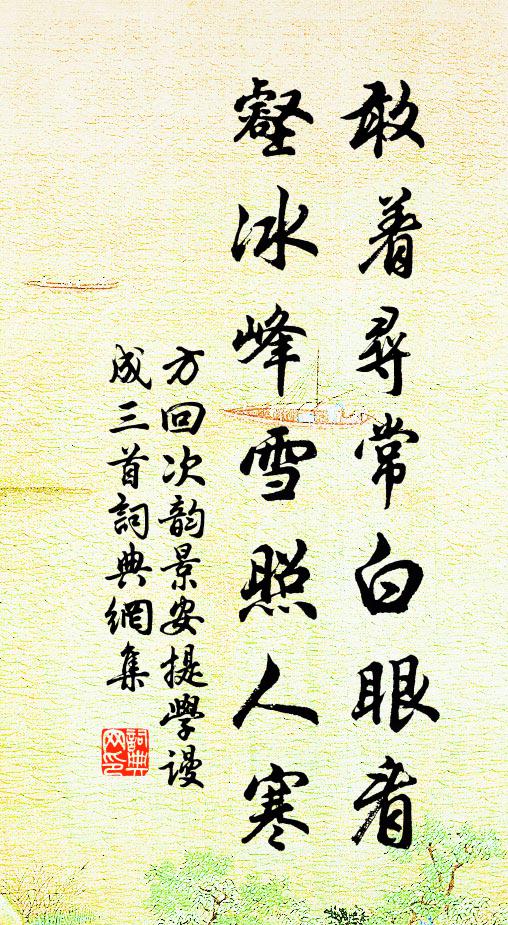 敢着尋常白眼看
壑冰峰雪照人寒
方回次韵景安提學谩
成三首詞典網集
詞典
网印